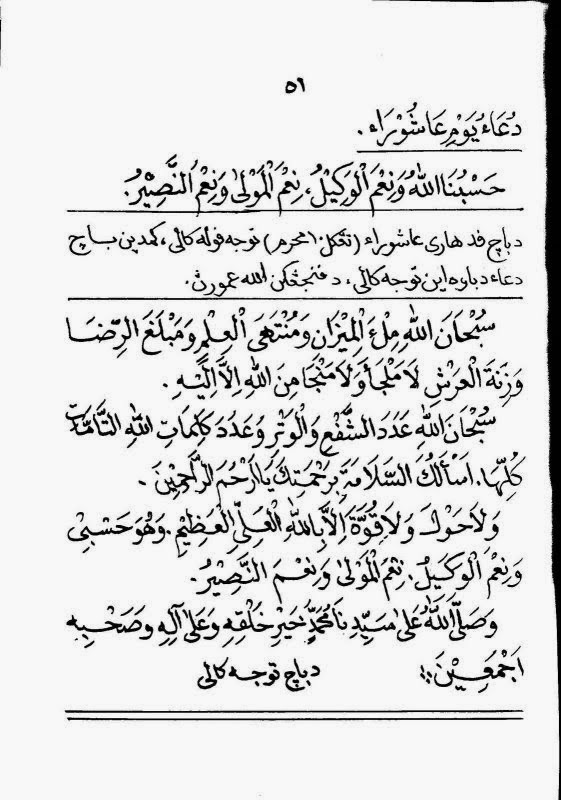 ٥٦
دُعَاءُ يَوْمِ عَاشُوْرَاءَ.
حَسْبُنَا اللهُ وَنِعْمَ الْوَكِيْلُ، نِعْمَ الْمَوْلَىٰ وَنِعْمَ النَّصِيْرُ.
دباچ ڤد هاري عاشوراء (تڠݢل ١٠ محرم) توجه ڤوله كالي، كمدين باچ
دعاء دباوه اين توجه كالي، دڤنجڠكن الله عمورڽ.
سُبْحَانَ اللهِ مِلْءَ الْمِيْزَانِ وَمُنْتَهَى الْعِلْمِ وَمَبْلَغَ الرِّضَا
وَزِنَةَ الْعَرْشِ لَا مَلْجَأَ وَلَا مَنْجَا مِنَ اللهِ اِلَّا اِلَيْهِ.
سُبْحَانَ اللهِ عَدَدَ الشَّفْعِ وَالْوَتْرِ وَعَدَدَ كَلِمَاتِ اللهِ التَّامَّاتِ
كُلِّهَا. اَسْأَلُكَ السَّلَامَةَ بِرَحْمَتِكَ يَا اَرْحَمَ الرَّاحِمِيْنَ.
وَلَا حَوْلَ وَلَا قُوَّةَ اِلَّا بِاللهِ الْعَلِيِّ الْعَظِيْمِ. وَهُوَ حَسْبِيْ
وَنِعْمَ الْوَكِيْلُ. نِعْمَ الْمَوْلَىٰ وَنِعْمَ النَّصِيْرُ.
وَصَلَّى اللهُ عَلَىٰ سَيِّدِنَا مُحَمَّدٍ خَيْرِ خَلْقِهِ وَعَلَىٰ آلِهِ وَصَحْبِهِ
اَجْمَعِيْنَ. دباچ توجه كالي